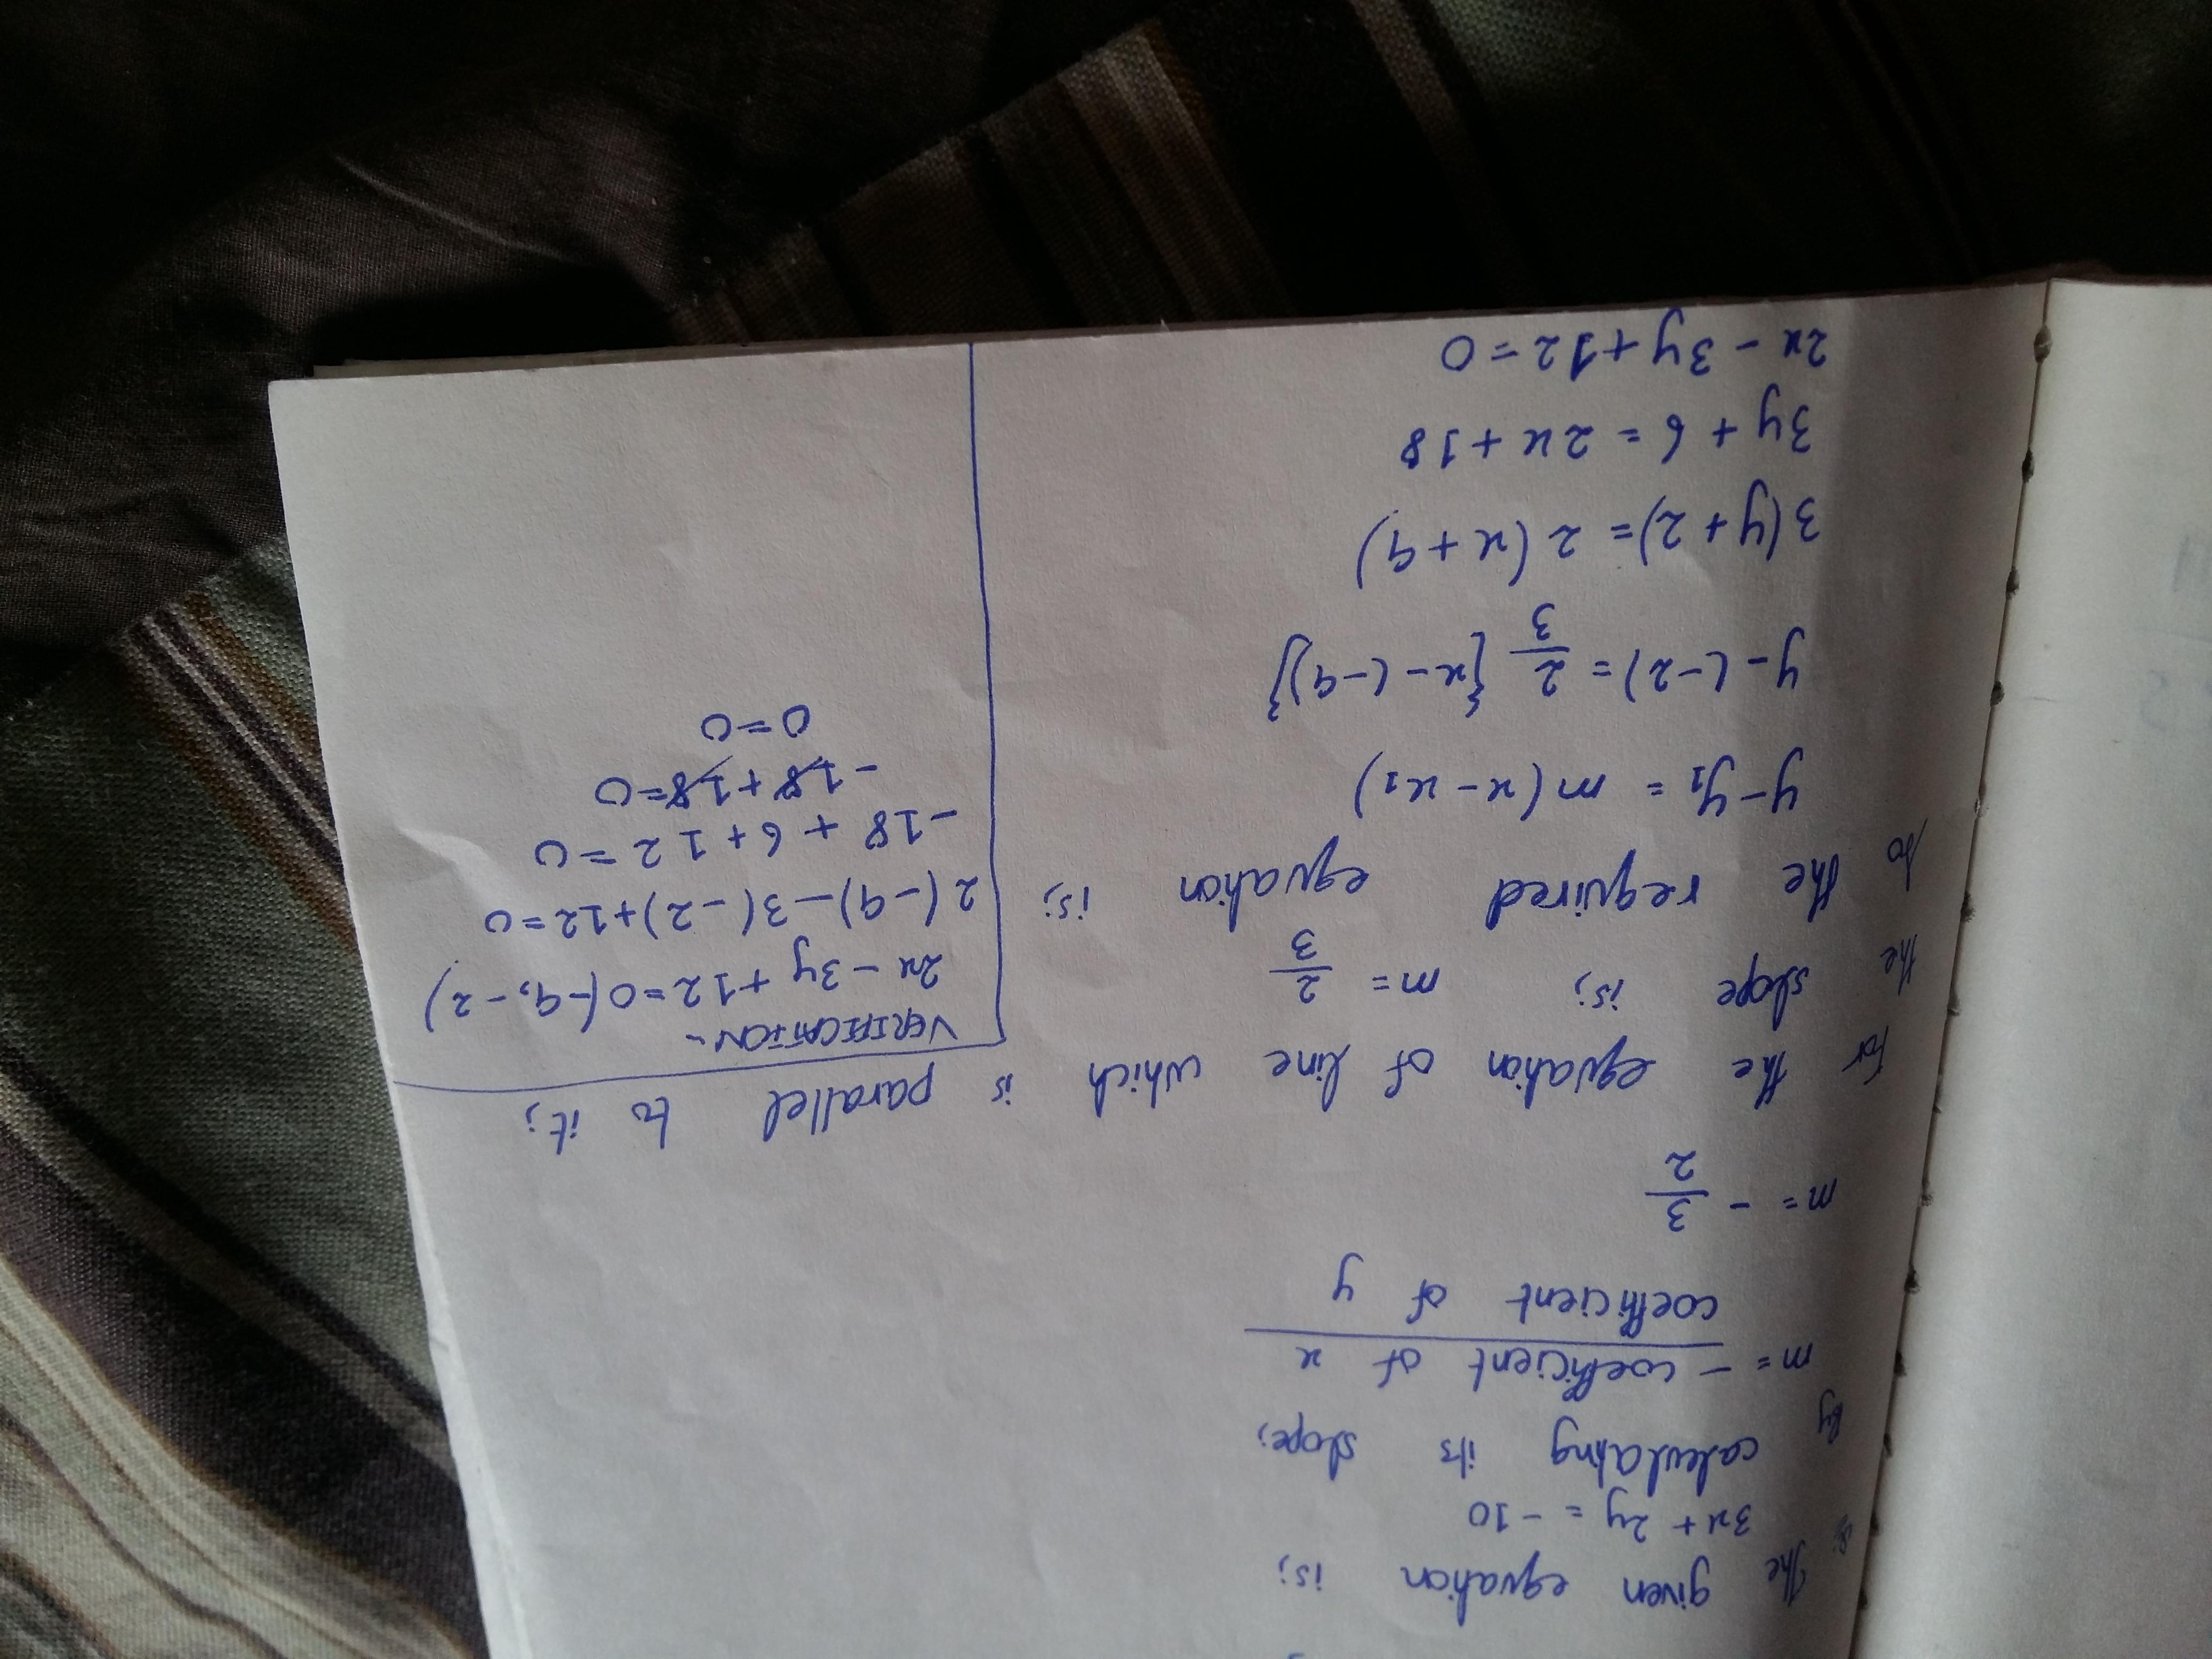 The given equation is;
3x + 2y = -10
By calculating its slope;
m = - coefficient of x
coefficient of y
m = - 3/2
For the equation of line which is parallel to it,
the slope is; m = 2/3
to the required equation is;
y-y1 = m(x-x1)
y-(-2) = 2/3 {x-(-9)}
3(y+2) = 2(x+9)
3y + 6 = 2x + 18
2x - 3y + 12 = 0
VERIFICATION-
2x - 3y + 12 = 0 (-9, -2)
2(-9) - 3(-2) + 12 = 0
-18 + 6 + 12 = 0
-18 + 18 = 0
0 = 0